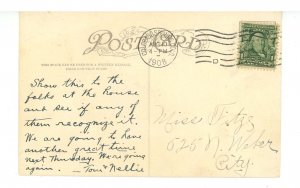 POST CARD
THIS SPACE CAN BE USED FOR A WRITTEN MESSAGE.
AUG
4-PM
1908
Show this to the
folks at the house
and see if any of
them recognize it.
We are going to have
another great time
next Thursday. We're going
again. — Tom & Nellie
Miss Fritz
625 N. Weber
City.